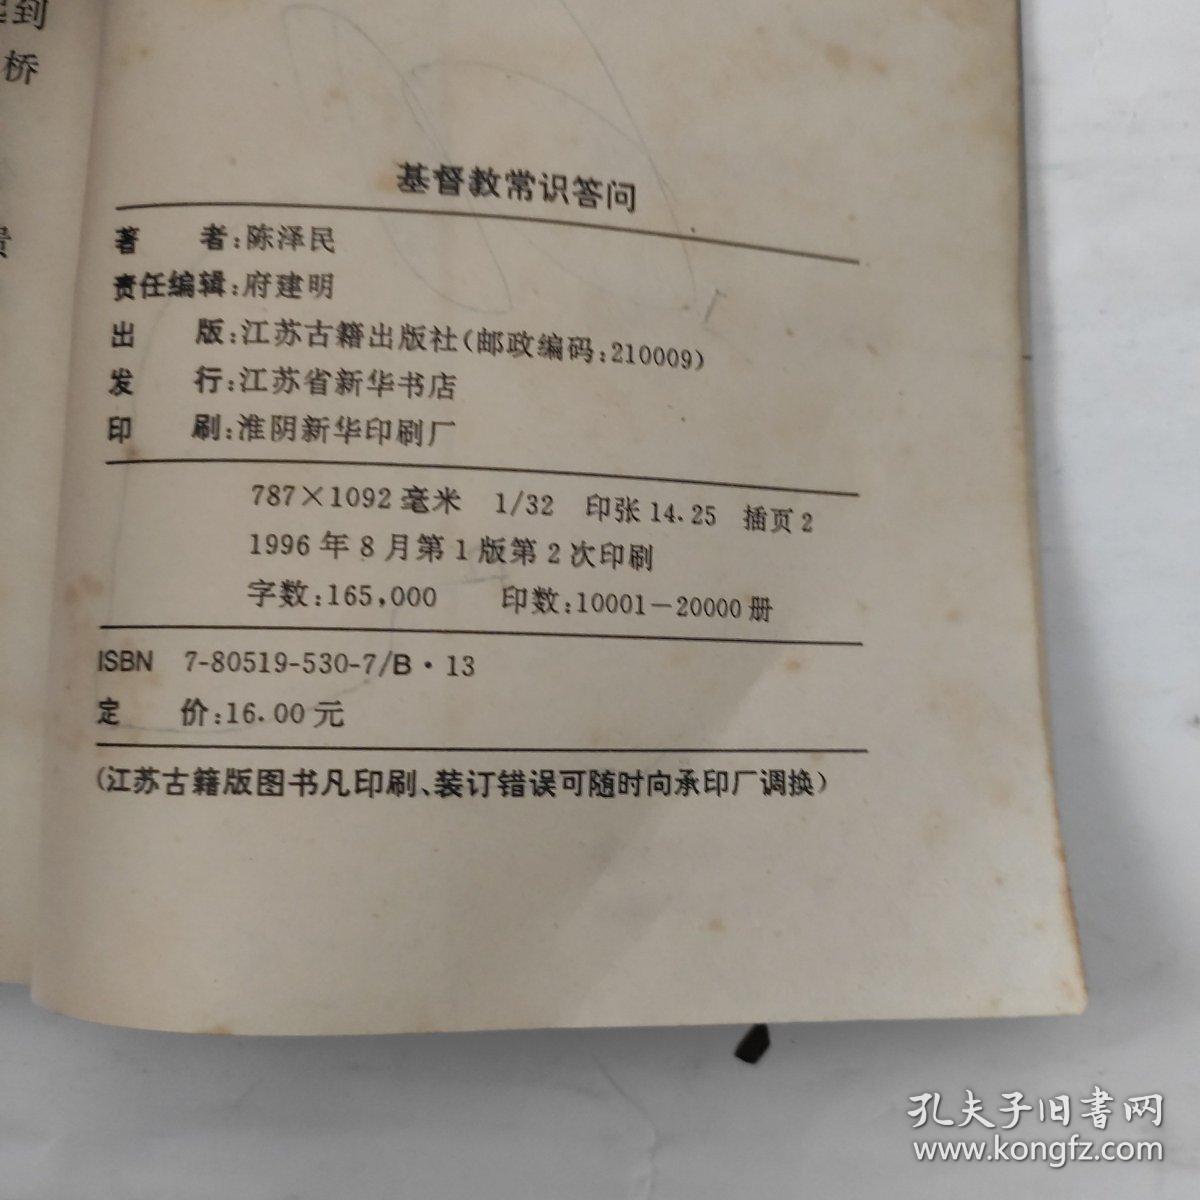 到
桥
基督教常识答问
著 者:陈泽民
责任编辑:府建明
出 版:江苏古籍出版社(邮政编码:210009)
发 行:江苏省新华书店
印 刷:淮阴新华印刷厂
787×1092毫米 1/32 印张14.25 插页2
1996年8月第1版第2次印刷
字数:165,000 印数:10001—20000册
ISBN 7-80519-530-7/B·13
定 价:16.00元
(江苏古籍版图书凡印刷、装订错误可随时向承印厂调换)
孔夫子旧书网
www.kongfz.com